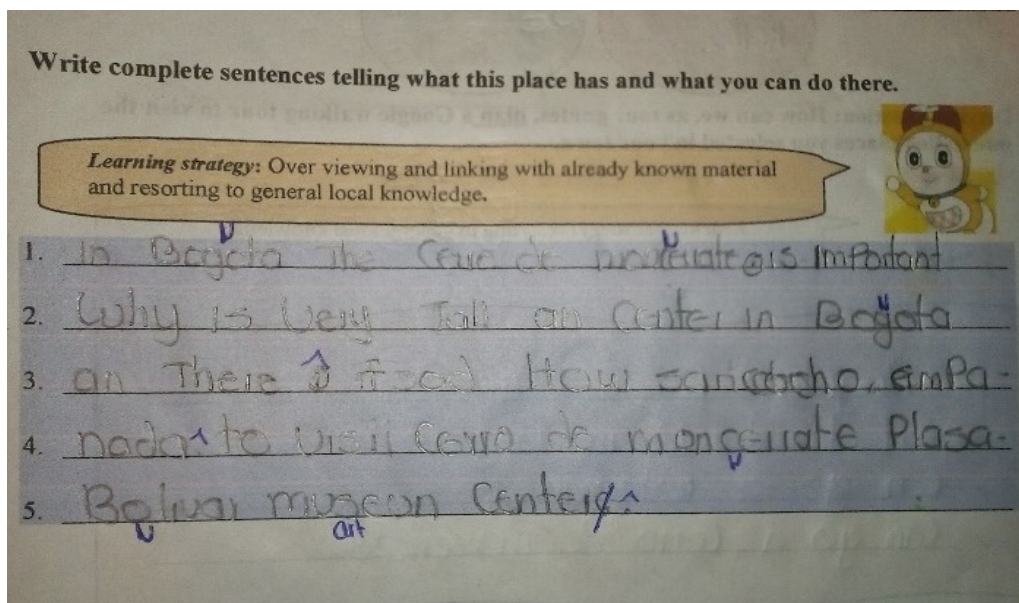 Write complete sentences telling what this place has and what you can do there.
Learning strategy: Over viewing and linking with already known material
and resorting to general local knowledge.
1. In Bogota The Cerro de is Important
2. Why is Very Tall an Center in Bogota
3. an There is Food How sancocho, empa-
4. nada to visit Cerro de moncerrate Plasa-
5. Bolivar museun Center
art